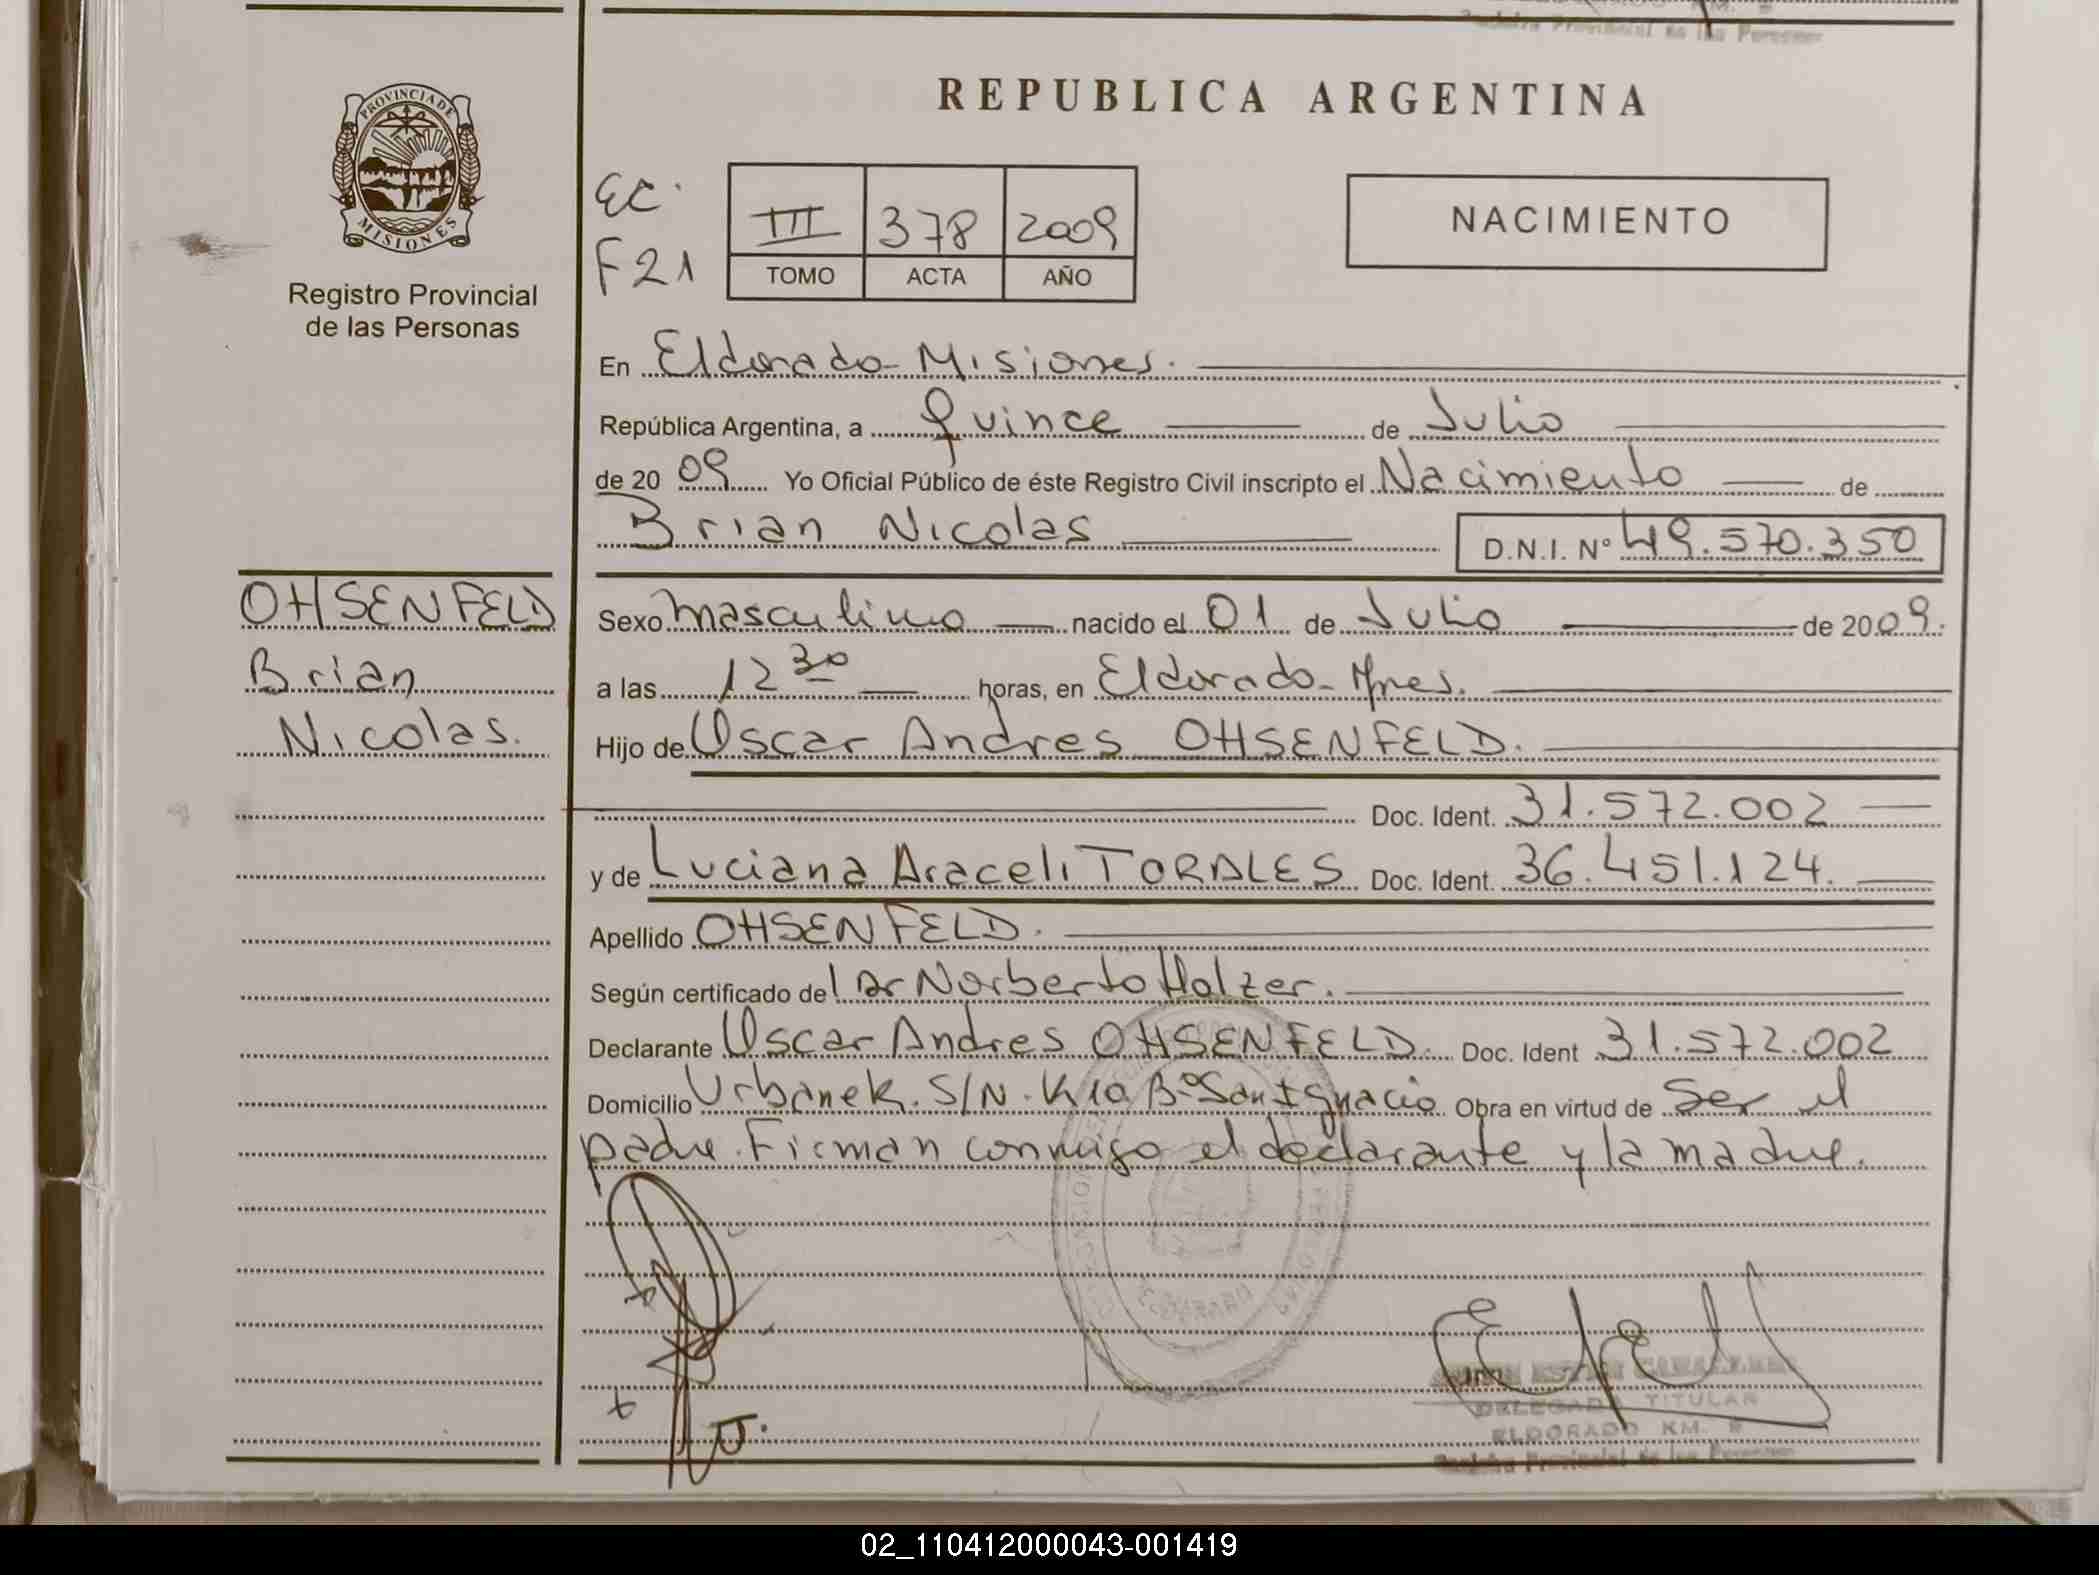 REPUBLICA ARGENTINA
PROVINCIA DE
MISIONES
Registro Provincial
de las Personas
EC.
F21
III 378 2009
TOMO ACTA AÑO
NACIMIENTO
En Eldorado - Misiones.
República Argentina, a quince de Julio
de 20 09 Yo Oficial Público de éste Registro Civil inscripto el Nacimiento de
Brian Nicolas D.N.I. Nº 49.570.350
OHSENFELD
Brian
Nicolas.
Sexo masculino nacido el 01 de Julio de 2009.
a las 12 30 horas, en Eldorado - Mnes.
Hijo de Oscar Andres OHSENFELD.
Doc. Ident. 31.572.002
y de Luciana Araceli TORALES Doc. Ident. 36.451.124.
Apellido OHSENFELD.
Según certificado del Dr Norberto Holzer.
Declarante Oscar Andres OHSENFELD. Doc. Ident 31.572.002
Domicilio Urbanek. S/N. K10. Bº San Ignacio Obra en virtud de Ser el
padre. Firman conmigo el declarante y la madre.
DELEGADO TITULAR
ELDORADO KM.
Registro Provincial de las Personas
02_110412000043-001419